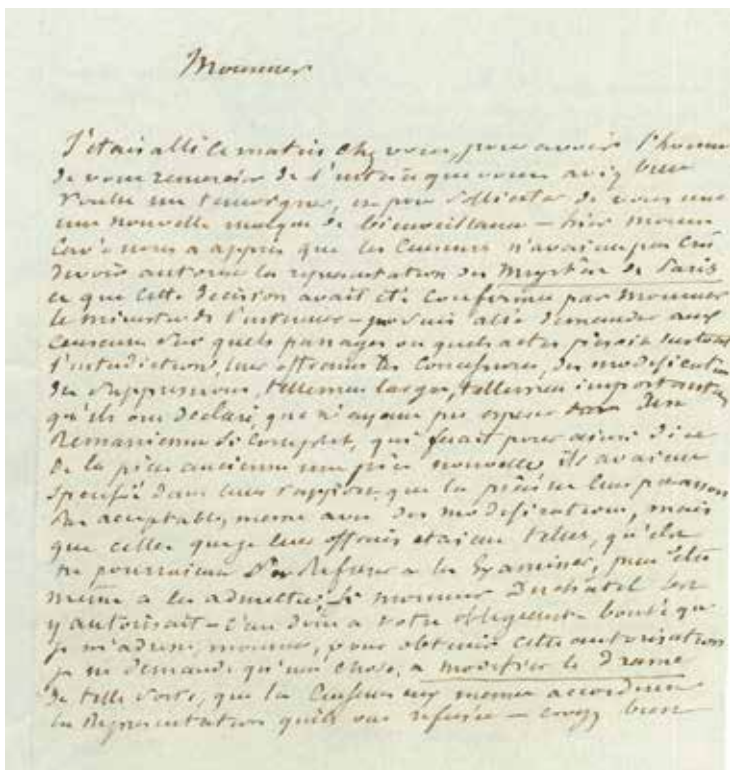 Monsieur
J'étais allé ce matin chez vous, pour avoir l'honneur
de vous remercier de l'intérêt que vous aviez bien
voulu me temoigner, et pour solliciter de vous une
une nouvelle marque de bienveillance — hier monsieur
Cavé nous a appris que les Censeurs n'avaient pas cru
devoir autoriser la representation des Mystères de Paris
et que cette decision avait été confirmée par Monsieur
le ministre de l'interieur — je suis allé demander aux
censeurs sur quels passages ou quels actes pesait surtout
l'interdiction, leur offrant des concessions, des modifications
des suppressions, tellement larges, tellement importantes
qu'ils ont declaré, que n'ayant pu esperer un
remaniement si complet, qui ferait pour ainsi dire
de la pièce ancienne une pièce nouvelle, ils avaient
specifié dans leur rapport que la pièce ne leur paraissait
pas acceptable, meme avec des modifications, mais
que celles que je leur offrais etaient telles, qu'ils
ne pourraient se refuser a les Examiner, peut être
même a les admettre, si monsieur Duchâtel les
y autorisait — c'est donc a votre obligeante bonté que
je m'adresse, monsieur, pour obtenir cette autorisation
je ne demande qu'une chose, a modifier le drame
de telle sorte, que les Censeurs eux memes accordent
la Representation qu'ils ont refusée — croyez bien